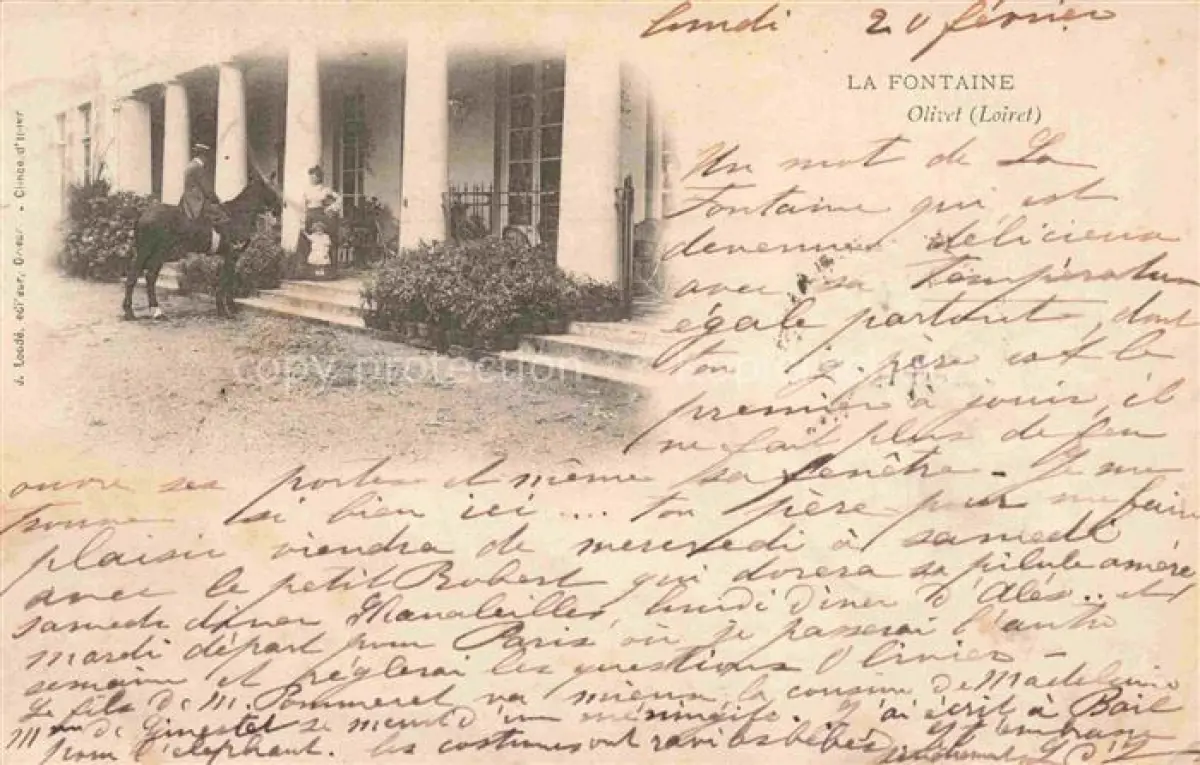 lundi 20 février
LA FONTAINE
Olivet (Loiret)
J. Loddé, éditeur, Orléans
copy protection
Un mot de La
Fontaine qui est
devenue délicieux
avec sa température
égale partout, dont
ton g. père est le
premier à jouir, il
ne fait plus de feu
ouvre ses portes et même sa fenêtre - Je me
trouve si bien ici ... ton père pour me faire
plaisir viendra de mercredi à samedi
avec le petit Robert qui dorera sa pilule amère
samedi diner lundi diner d'Alès .. et
mardi départ pour Paris où je passerai l'autre
semaine et réglerai les questions Olivier -
Le fils de M. Pommeret va mieux la cousine de Madeleine
Mme de Ginestet se meurt d'une méningite. J'ai écrit à Bail
pour l'éléphant. les costumes ont ravi les bébés